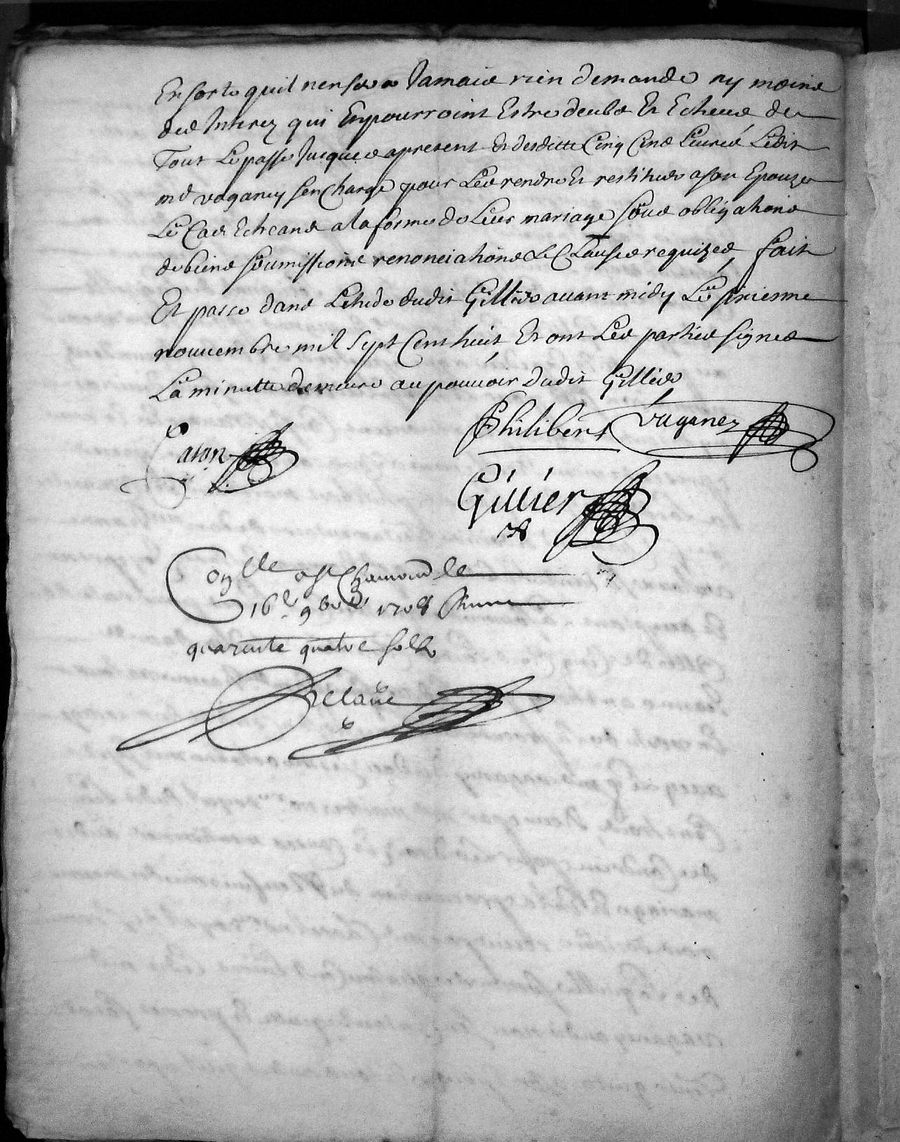 En sorte quil nen sera Jamais rien demande ny moins
des Interez qui En pourroint Estre deubs Et Echeus de
Tout Le passe Jusques apresent Et desdittes Cinq Cens Livres Ledit
mr vaganey sen Charge pour Les rendre Et restituer a son Epouze
Le Cas Echeant a la forme de Leur mariage soubs obligations
de biens soumissions renonciations Et Clauses requizes, fait
Et passe dans Lestude dudit Gillier avant midy Le sixiesme
nouvembre mil sept Cent huit Et ont Les parties signes
La minutte demeure au pouvoir dudit Gillier
Philibert vaganey
Gillier
Conlle a St Chamond le
16e 9bre 1708 Reçu
quarente quatre sols